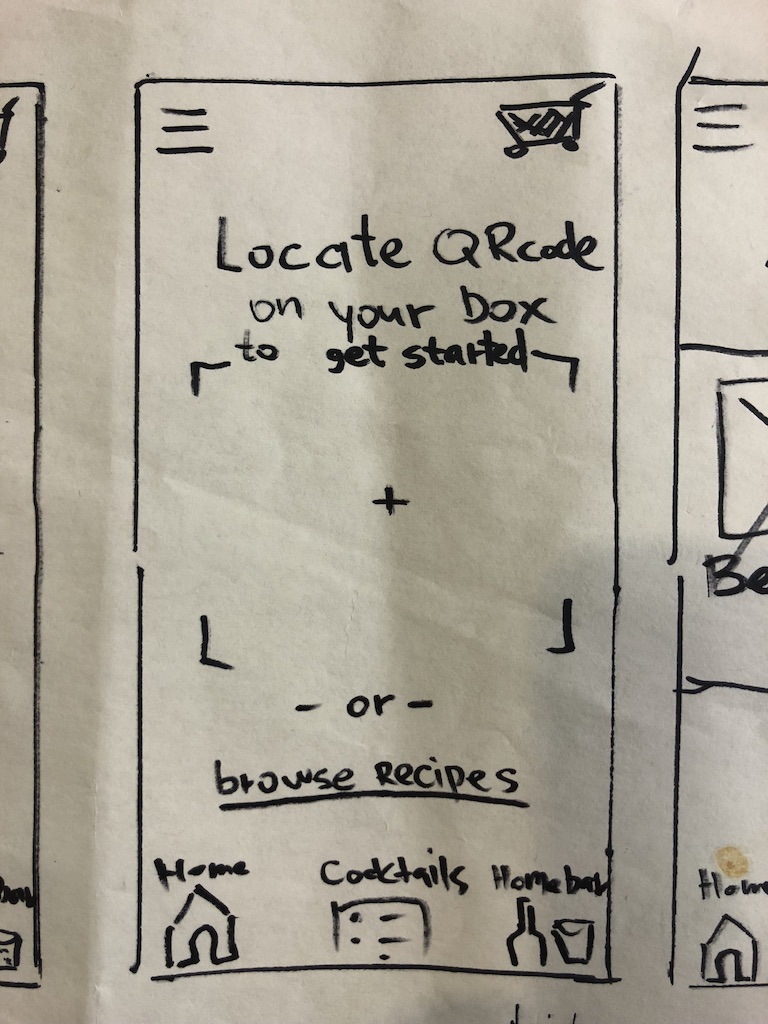 Locate QRcode
on your box
to get started
- or -
browse Recipes
Home
Cocktails
Homebar
Be
Hom